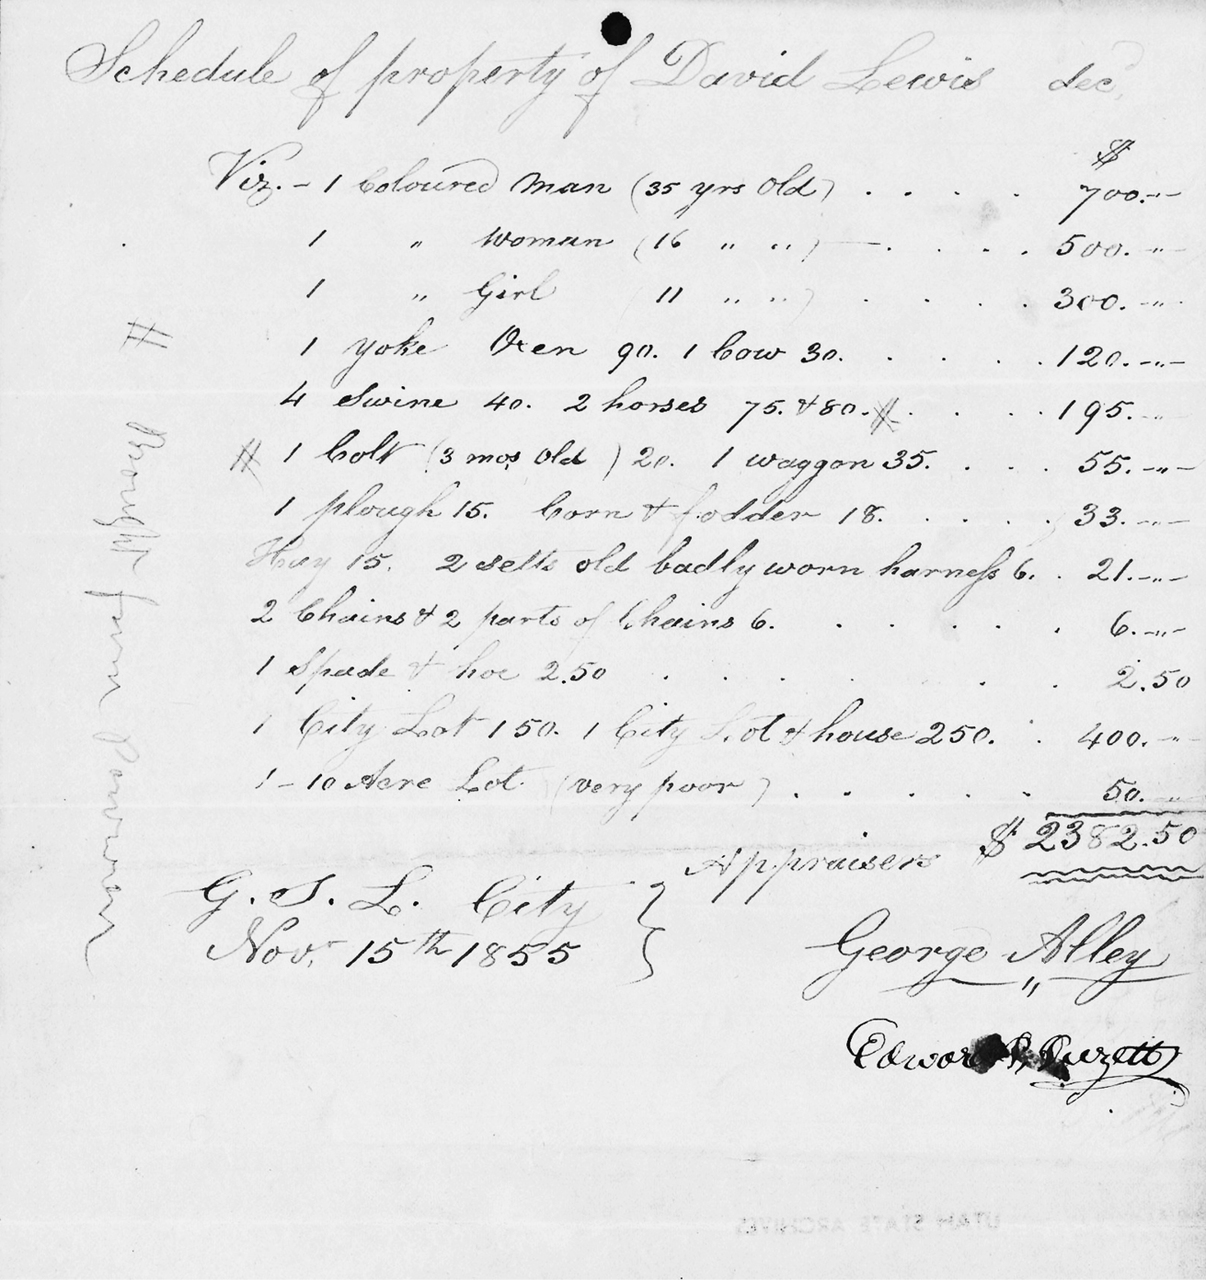 Schedule of property of David Lewis decd
$
Viz. – 1 Coloured Man (35 yrs Old) . . . . 700.–"–
1 " Woman (16 " " ) — . . . . 500. –"–
1 " Girl 11 " " ) . . . . 300. –"–
1 yoke Oxen 90. 1 Cow 30. . . . . 120. –"–
4 Swine 40. 2 horses 75. & 80. # . . . 195. –"
# 1 Colt (3 mos Old ) 20. 1 waggon 35. . . . 55. –"–
1 plough 15. Corn & fodder 18. . . . . 33. –"–
Hay 15. 2 setts old badly worn harness 6. . 21. –"–
2 Chains & 2 parts of Chains 6. . . . . . . 6. –"–
1 Spade & hoe 2.50 . . . . . . 2.50
1 City Lot 150. 1 City Lot & house 250. . . 400. –"
1 – 10 Acre Lot (very poor) . . . . . 50. –"
$ 2382.50
Appraisers
G. S. L. City
Novr 15th 1855
George Alley
Edward Duzett
# Brought from Parowan
UTAH STATE ARCHIVES